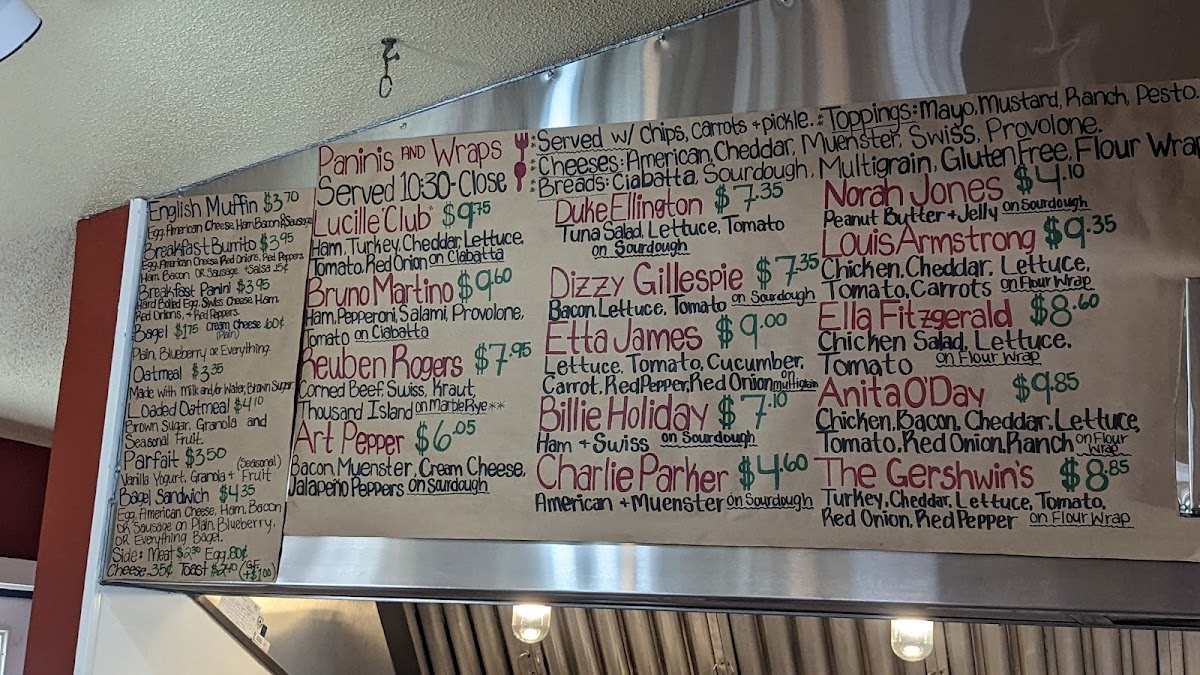 English Muffin $3.70
Egg, American Cheese, Ham, Bacon OR Sausage
Breakfast Burrito $3.95
Egg, American Cheese, Red Onions, Red Peppers
Ham, Bacon OR Sausage +Salsa .15¢
Breakfast Panini $3.95
Hard Boiled Egg, Swiss Cheese, Ham,
Red Onions, + Red Peppers.
Bagel $1.75 Cream Cheese .60¢
(Plain)
Plain, Blueberry or Everything.
Oatmeal $3.35
Made with Milk and/or Water, Brown Sugar.
Loaded Oatmeal $4.10
Brown Sugar, Granola and
Seasonal Fruit.
Parfait $3.50 (Seasonal)
Vanilla Yogurt, Granola + Fruit
Bagel Sandwich $4.35
Egg, American Cheese, Ham, Bacon
OR Sausage on Plain, Blueberry,
OR Everything Bagel.
Side: Meat $2.30 Egg .80¢
Cheese .35¢ Toast $2.40 (GF +$1.00)
Paninis AND Wraps
Served 10:30-Close
Lucille "Club" $9.75
Ham, Turkey, Cheddar, Lettuce,
Tomato, Red Onion on Ciabatta
Bruno Martino $9.60
Ham, Pepperoni, Salami, Provolone,
Tomato on Ciabatta
Reuben Rogers $7.95
Corned Beef, Swiss, Kraut,
Thousand Island on Marble Rye**
Art Pepper $6.05
Bacon, Muenster, Cream Cheese,
Jalapeño Peppers on Sourdough
*Served w/ Chips, Carrots + pickle. *Toppings: Mayo, Mustard, Ranch, Pesto.
*Cheeses: American, Cheddar, Muenster, Swiss, Provolone.
*Breads: Ciabatta, Sourdough, Multigrain, Gluten Free, Flour Wrap
Duke Ellington $7.35
Tuna Salad, Lettuce, Tomato
on Sourdough
Dizzy Gillespie $7.35
Bacon, Lettuce, Tomato on Sourdough
Etta James $9.00
Lettuce, Tomato, Cucumber,
Carrot, Red Pepper, Red Onion on multigrain
Billie Holiday $7.10
Ham + Swiss on Sourdough
Charlie Parker $4.60
American + Muenster on Sourdough
Norah Jones $4.10
Peanut Butter + Jelly on Sourdough
Louis Armstrong $9.35
Chicken, Cheddar, Lettuce,
Tomato, Carrots on Flour Wrap
Ella Fitzgerald $8.60
Chicken Salad, Lettuce,
Tomato on Flour Wrap
Anita O'Day $9.85
Chicken, Bacon, Cheddar, Lettuce,
Tomato, Red Onion, Ranch on Flour Wrap
The Gershwin's $8.85
Turkey, Cheddar, Lettuce, Tomato,
Red Onion, Red Pepper on Flour Wrap